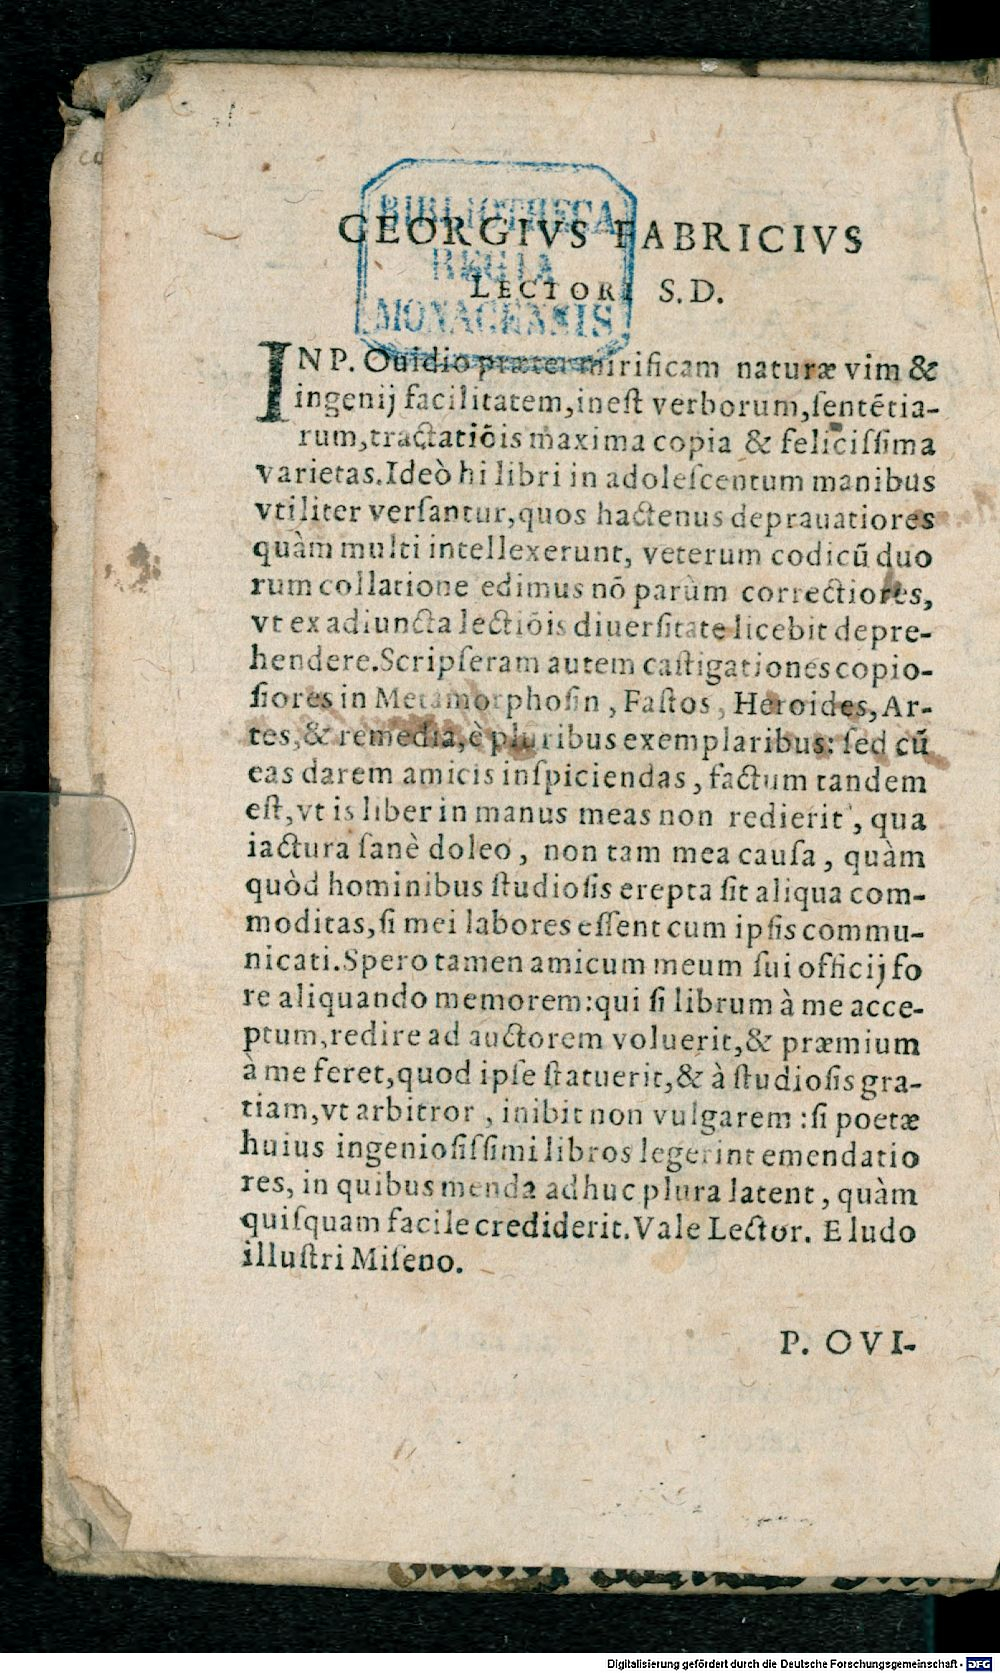 BIBLIOTHECA
REGIA
MONACENSIS
GEORGIVS FABRICIVS
LECTORI S.D.
IN P. Ouidio præter mirificam naturæ vim &
ingenij facilitatem, ineſt verborum, ſentētia-
rum, tractatiōis maxima copia & feliciſſima
varietas. Ideò hi libri in adoleſcentum manibus
vtiliter verſantur, quos hactenus deprauatiores
quàm multi intellexerunt, veterum codicū duo
rum collatione edimus nō parùm correctiores,
vt ex adiuncta lectiōis diuerſitate licebit depre-
hendere. Scripſeram autem caſtigationes copio-
ſiores in Metamorphoſin, Faſtos, Heroides, Ar-
tes, & remedia, è pluribus exemplaribus: ſed cū
eas darem amicis inſpiciendas, factum tandem
eſt, vt is liber in manus meas non redierit, qua
iactura ſanè doleo, non tam mea cauſa, quàm
quòd hominibus ſtudioſis erepta ſit aliqua com-
moditas, ſi mei labores eſſent cum ipſis commu-
nicati. Spero tamen amicum meum ſui officij fo
re aliquando memorem: qui ſi librum à me acce-
ptum, redire ad auctorem voluerit, & præmium
à me feret, quod ipſe ſtatuerit, & à ſtudioſis gra-
tiam, vt arbitror, inibit non vulgarem: ſi poetæ
huius ingenioſiſſimi libros legerint emendatio
res, in quibus menda adhuc plura latent, quàm
quiſquam facile crediderit. Vale Lector. E ludo
illuſtri Miſeno.
P. OVI-
Digitalisierung gefördert durch die Deutsche Forschungsgemeinschaft - DFG